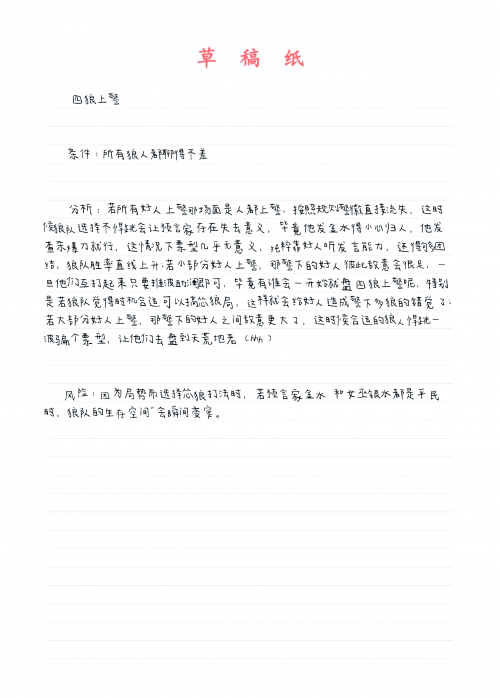 草稿纸
四狼上警
条件：所有狼人都聊得不差
分析：若所有好人上警那场面是人都上警，按照规则警徽直接流失，这时
候狼队选择不悍跳会让预言家存在失去意义，毕竟他发金水得小心归人，他发
查杀爆刀就行，这情况下票型几乎无意义，纯粹靠好人听发言能力，还得够团
结，狼队胜率直线上升；若小部分好人上警，那警下的好人彼此敌意会很足，一
旦他们互打起来只要推波助澜即可，毕竟有谁会一开始就盘四狼上警呢，特别
是若狼队觉得时机合适可以搞芯狼局，这样就会给好人造成警下多狼的错觉了；
若大部分好人上警，那警下的好人之间敌意更大了，这时候合适的狼人悍跳一
波骗个票型，让他们去盘到天荒地老（
风险：因为局势而选择芯狼打法时，若预言家金水和女巫银水都是平民
时，狼队的生存空间“会瞬间变窄。